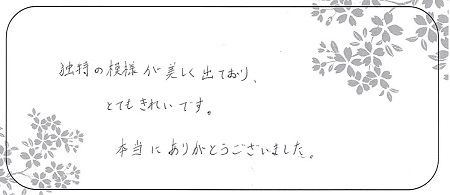 独特の模様が美しく出ており、
とてもきれいです。
本当にありがとうございました。